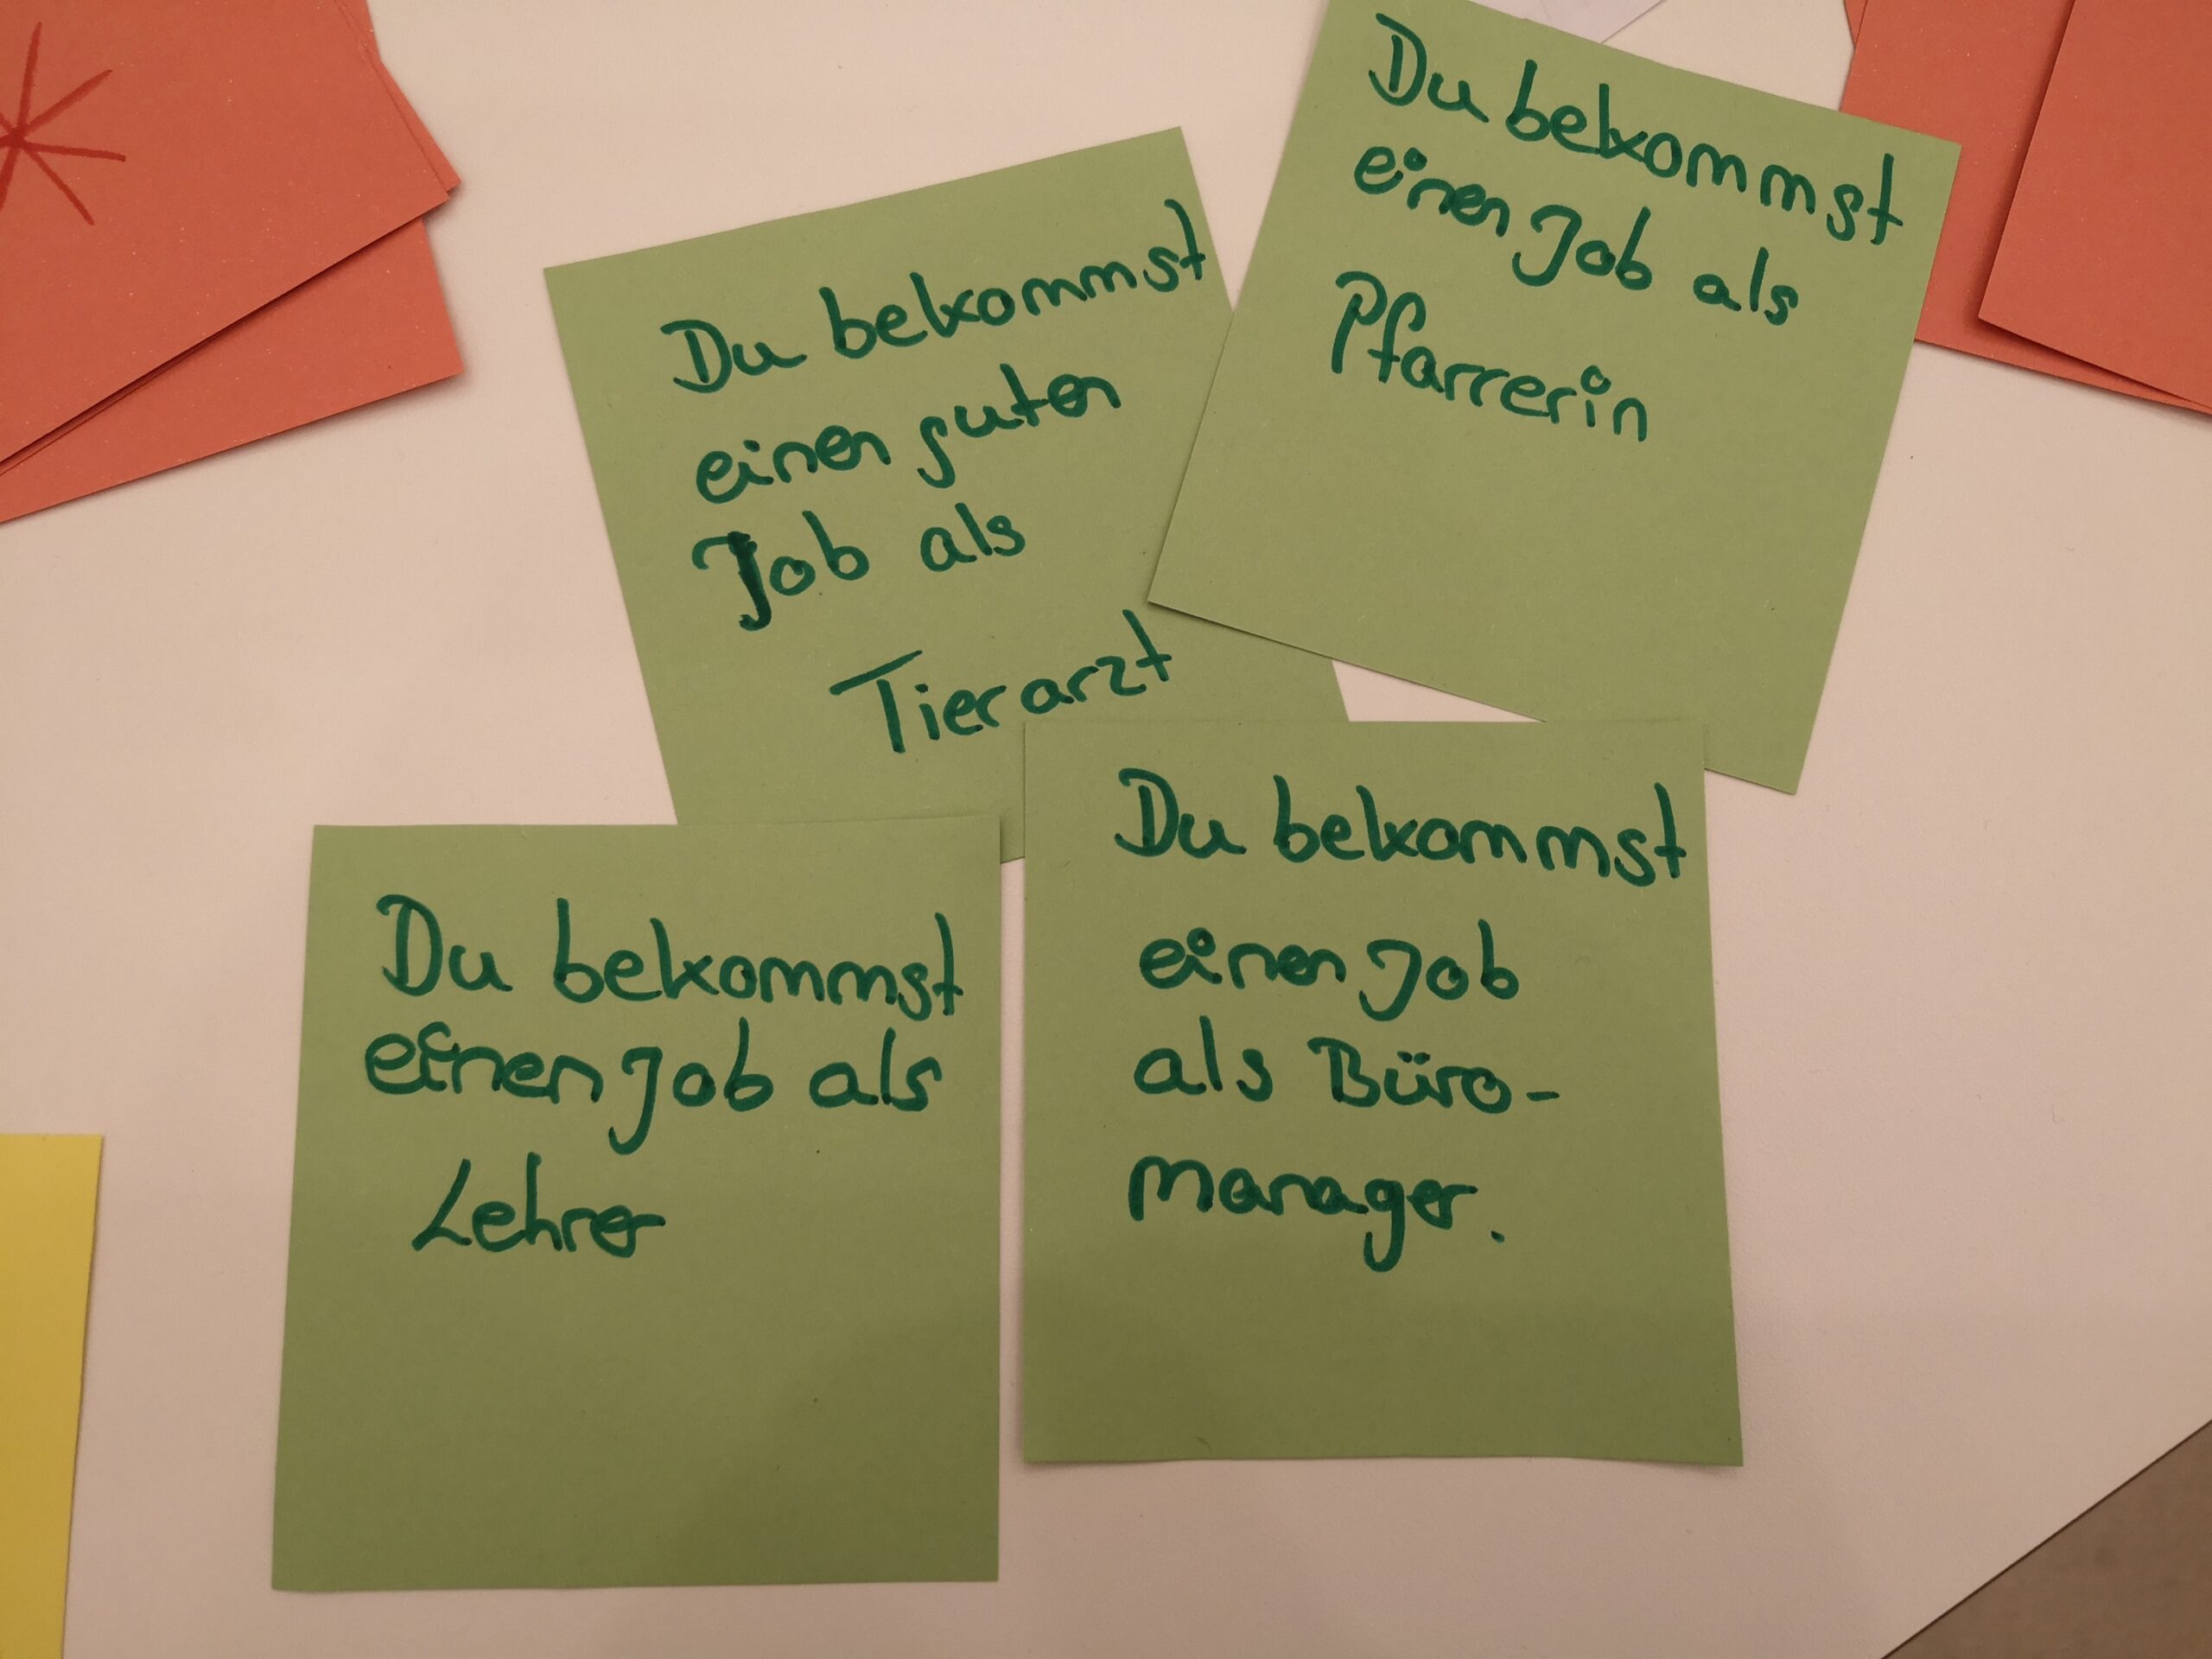 Du bekommst
einen guten
Job als
Tierarzt
Du bekommst
einen Job als
Pfarrerin
Du bekommst
einen Job als
Lehrer
Du bekommst
einen Job
als Büro-
manager.